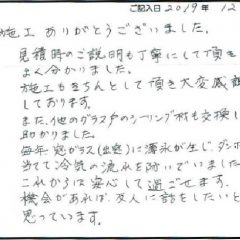 ご記入日 2019年 12
施工ありがとうございました。
見積時のご説明も丁寧にして頂き
よく分かりました。
施工もきちんとして頂き大変感
しております。
また、他のグラス戸のシーリング材も交換し
助かりました。
毎年窓ガラス(出窓)に薄氷が生じ、ダンボ
当てて冷気の流れを防いでいました
これからは安心して過ごせます。
機会があれば、友人に話をしたいと
思っています。